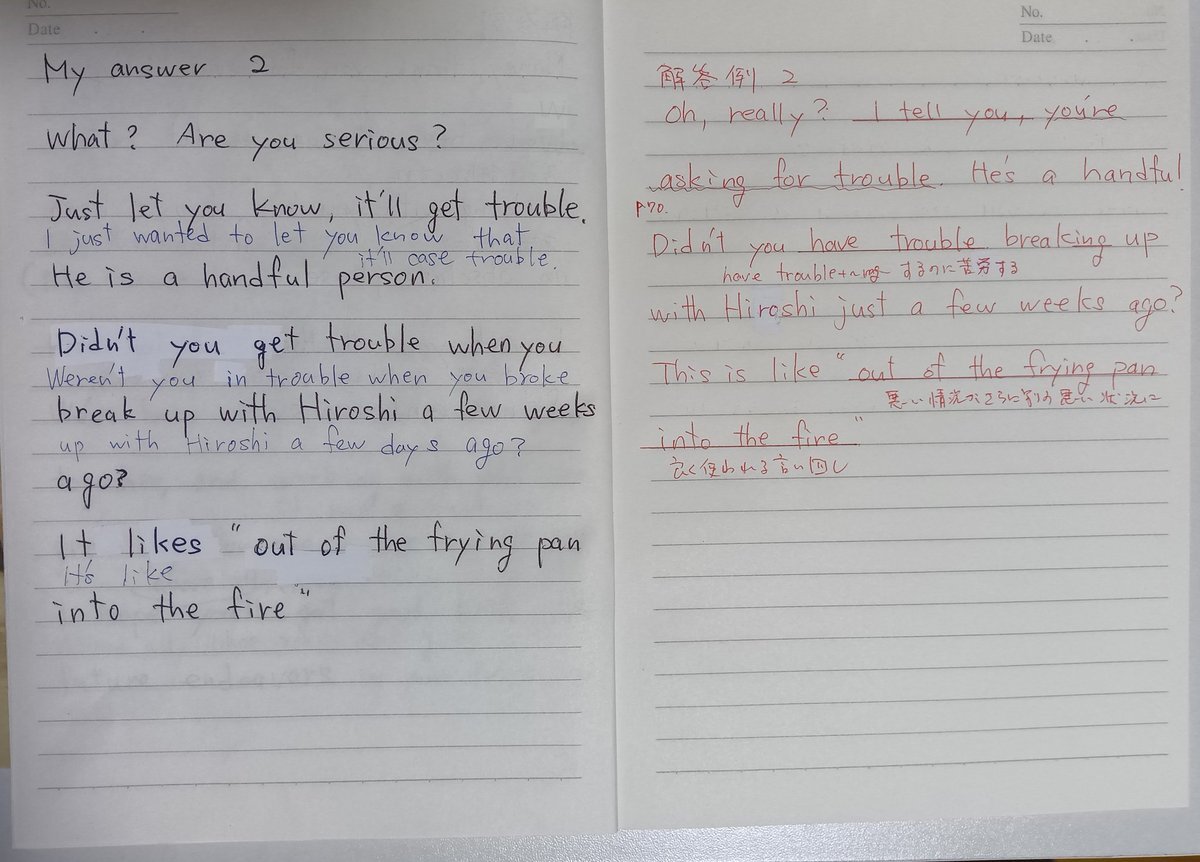 No.
Date
My answer 2
What? Are you serious?
Just let you know, it'll get trouble.
I just wanted to let you know that
it'll case trouble.
He is a handful person.
Didn't you get trouble when you
Weren't you in trouble when you broke
break up with Hiroshi a few weeks
up with Hiroshi a few days ago?
ago?
It likes "out of the frying pan
it's like
into the fire"
No.
Date
解答例 2
Oh, really? I tell you, you're
asking for trouble. He's a handful
P70.
Didn't you have trouble breaking up
have trouble+~ing するのに苦労する
with Hiroshi just a few weeks ago?
This is like "out of the frying pan
悪い情況がさらに別の悪い状況に
into the fire"
良く使われる言い回し